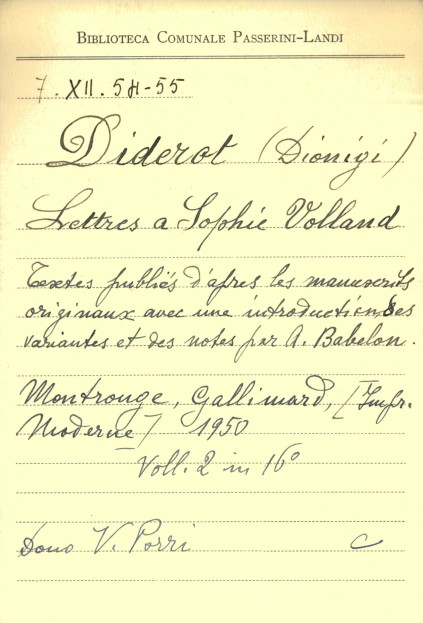 BIBLIOTECA COMUNALE PASSERINI-LANDI
7. XII. 54-55
Diderot (Dionigi)
Lettres a Sophie Volland
Textes publiés d'apres les manuscrits
originaux avec une introduction, des
variantes et des notes par A. Babelon.
Montrouge, Gallimard, [Impr.
Moderne] 1950
Voll. 2 in 16°
Dono V. Porri C